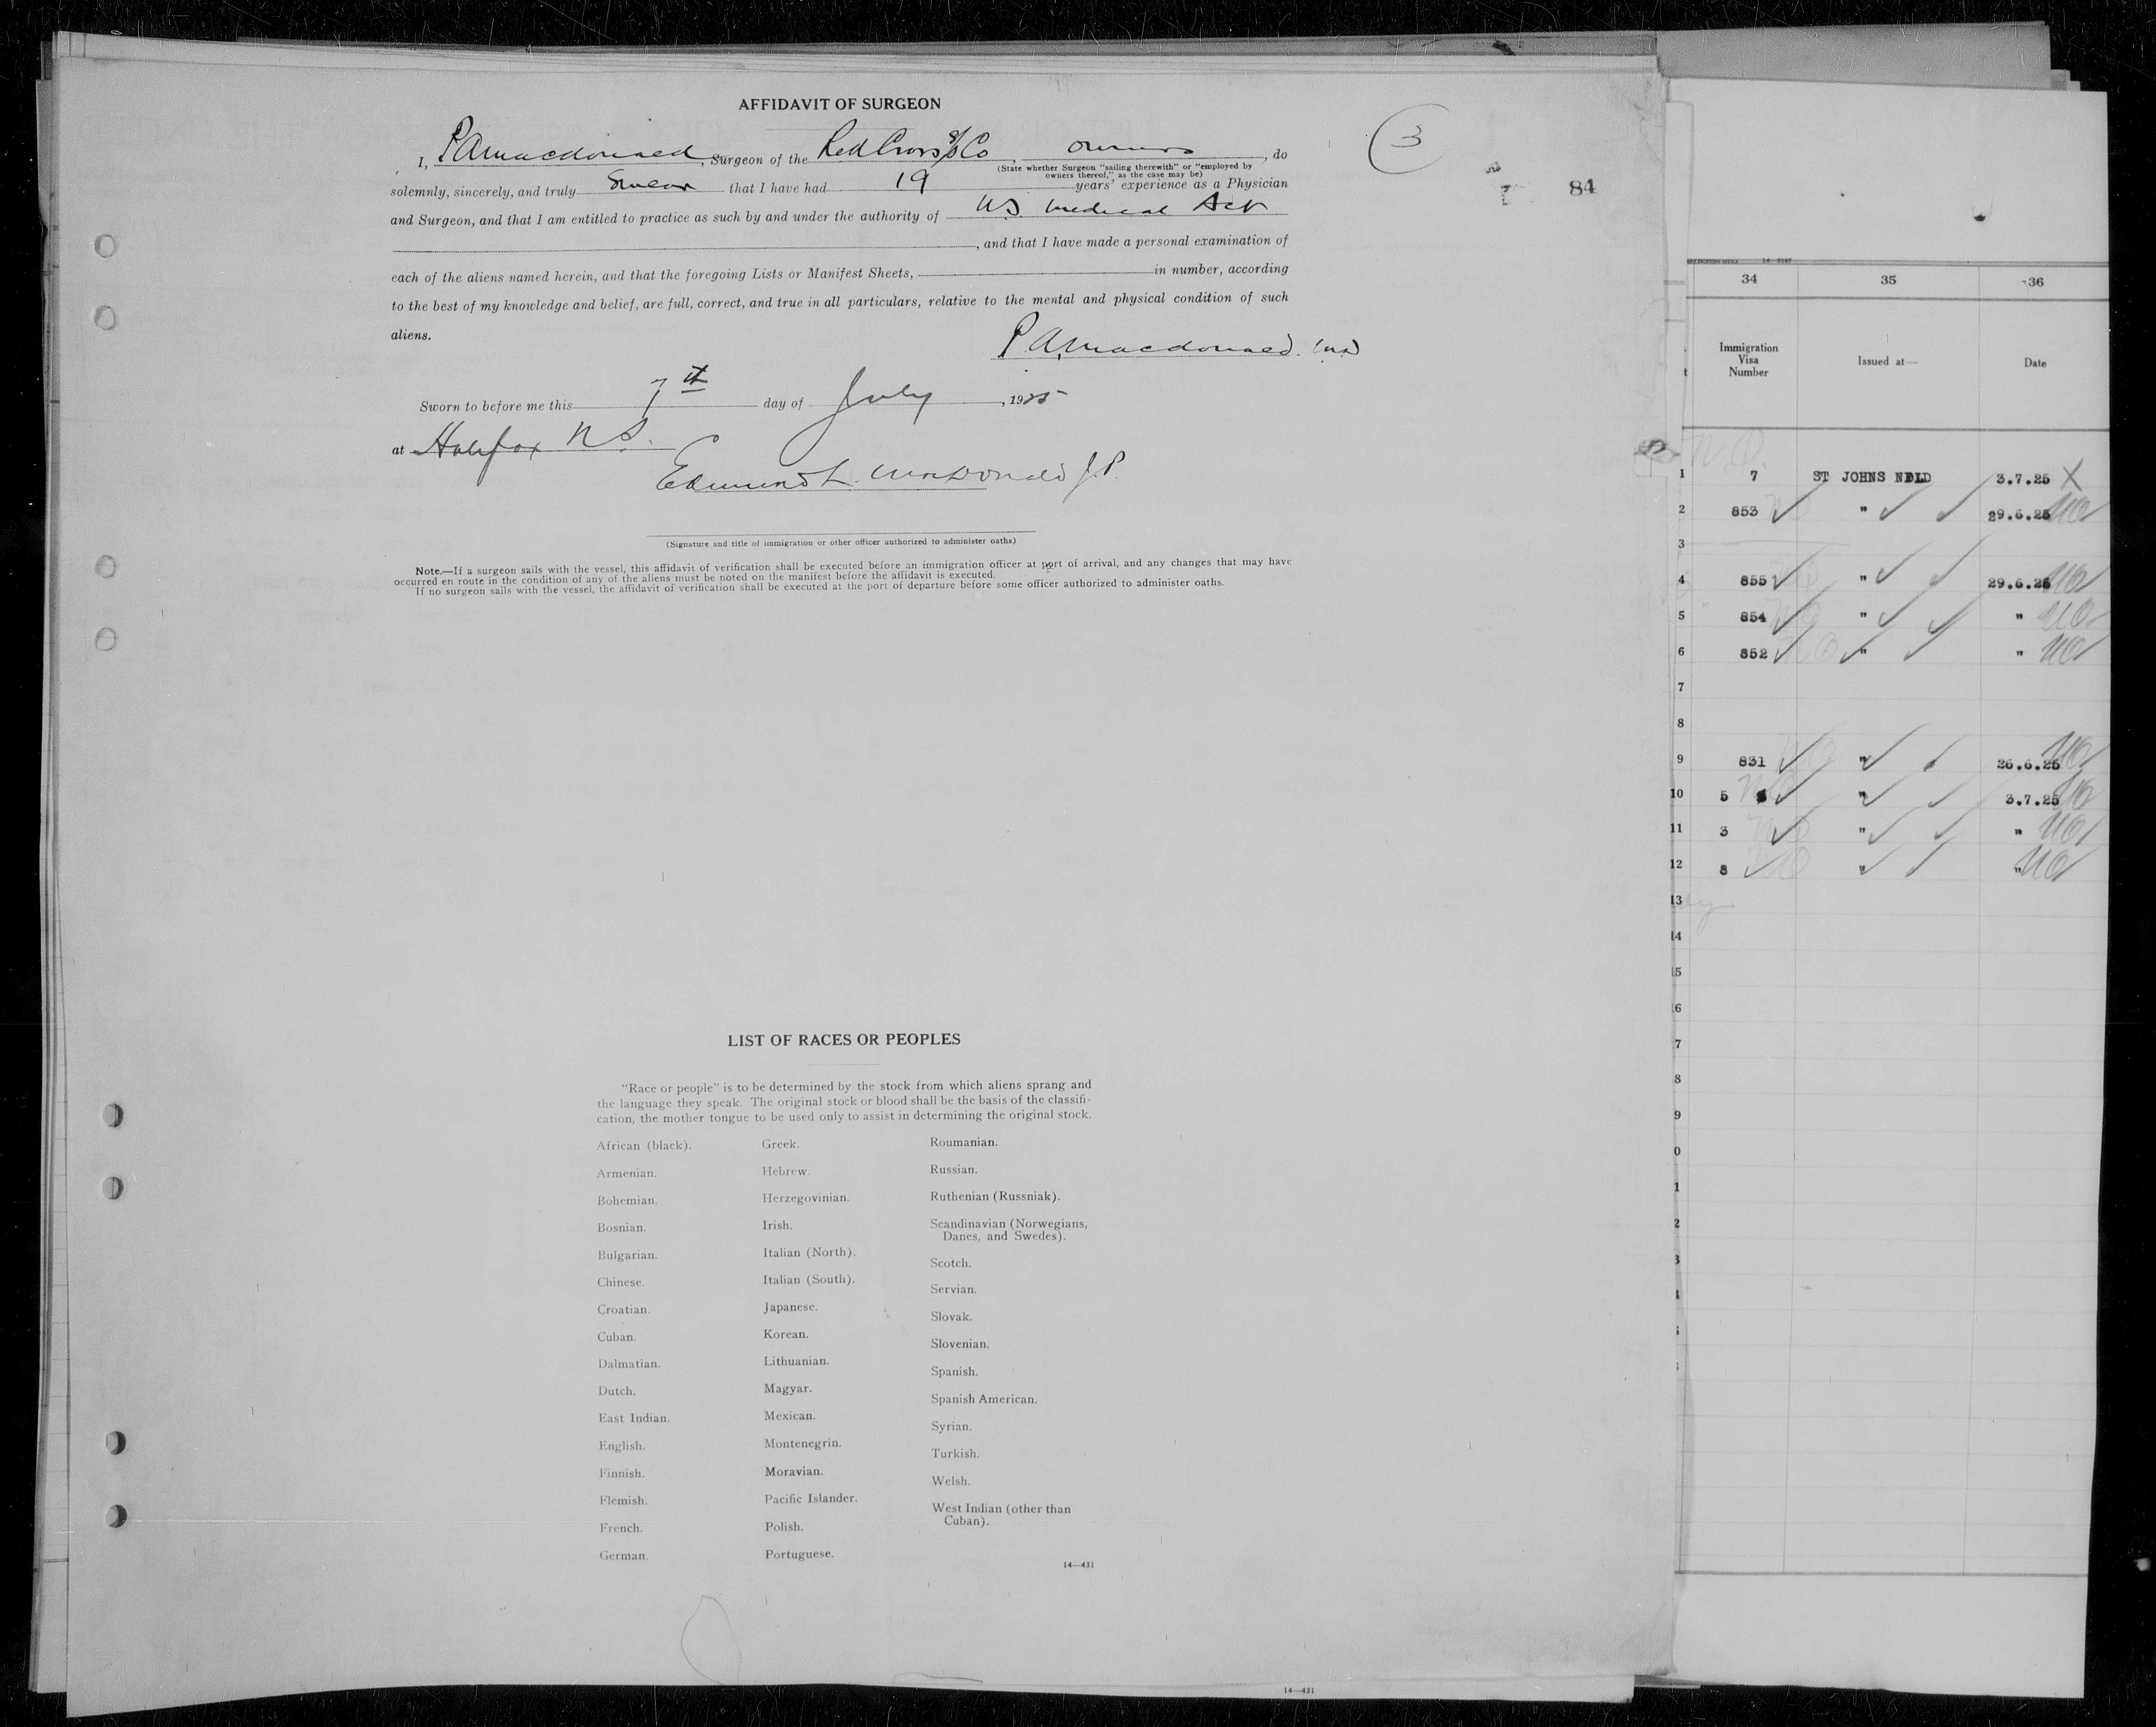 AFFIDAVIT OF SURGEON
I, P A Macdonald, Surgeon of the Red Cross S/S Co, owners, do
(State whether Surgeon "sailing therewith" or "employed by
owners thereof," as the case may be)
solemnly, sincerely, and truly Swear that I have had 19 years' experience as a Physician
and Surgeon, and that I am entitled to practice as such by and under the authority of Medical Act
, and that I have made a personal examination of
each of the aliens named herein, and that the foregoing Lists or Manifest Sheets, in number, according
to the best of my knowledge and belief, are full, correct, and true in all particulars, relative to the mental and physical condition of such
aliens.
P A Macdonald.
Sworn to before me this 7th day of July, 1925
at Halifax N S.
Edmund L. MacDonald J.P.
(Signature and title of immigration or other officer authorized to administer oaths)
Note.—If a surgeon sails with the vessel, this affidavit of verification shall be executed before an immigration officer at port of arrival, and any changes that may have
occurred en route in the condition of any of the aliens must be noted on the manifest before the affidavit is executed.
If no surgeon sails with the vessel, the affidavit of verification shall be executed at the port of departure before some officer authorized to administer oaths.
3
84
LIST OF RACES OR PEOPLES
"Race or people" is to be determined by the stock from which aliens sprang and
the language they speak. The original stock or blood shall be the basis of the classifi-
cation, the mother tongue to be used only to assist in determining the original stock.
African (black).
Armenian.
Bohemian.
Bosnian.
Bulgarian.
Chinese.
Croatian.
Cuban.
Dalmatian.
Dutch.
East Indian.
English.
Finnish.
Flemish.
French.
German.
Greek.
Hebrew.
Herzegovinian.
Irish.
Italian (North).
Italian (South).
Japanese.
Korean.
Lithuanian.
Magyar.
Mexican.
Montenegrin.
Moravian.
Pacific Islander.
Polish.
Portuguese.
Roumanian.
Russian.
Ruthenian (Russniak).
Scandinavian (Norwegians,
Danes, and Swedes).
Scotch.
Servian.
Slovak.
Slovenian.
Spanish.
Spanish American.
Syrian.
Turkish.
Welsh.
West Indian (other than
Cuban).
14—431
14—431
34 35 36
Immigration
Visa
Number
Issued at—
Date
1 7 ST JOHNS NDLD 3.7.25 X
2 853 " 29.6.25
3
4 855 " 29.6.25
5 854 " "
6 852 " "
7
8
9 831 " 26.6.25
10 5 " 3.7.25
11 3 " "
12 8 " "
13
14
15
6
7
8
9
0
1
2
3